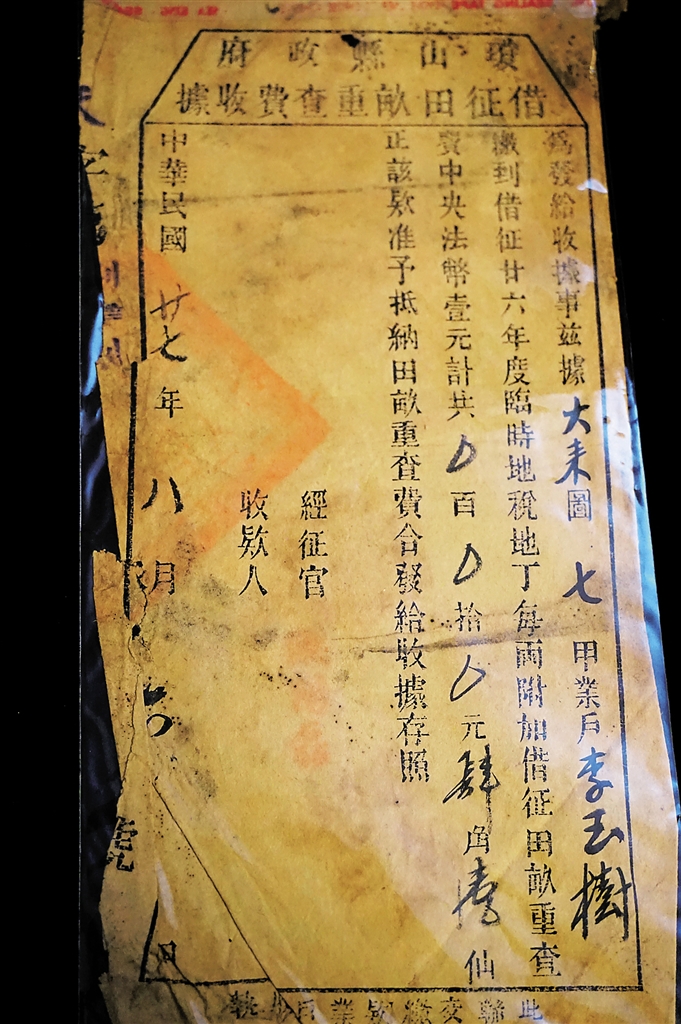 瓊山縣政府
借征田畝重查費收據
爲發給收據事茲據大来圖七甲業戶李玉樹
繳到借征廿六年度臨時地稅地丁每兩附加借征田畝重查
費中央法幣壹元計共0百0拾0元肆角壹仙
正該欵准予抵納田畝重查費合發給收據存照
經征官
收欵人
中華民國廿七年八月 日
字
號
此聯交繳納業戶收執